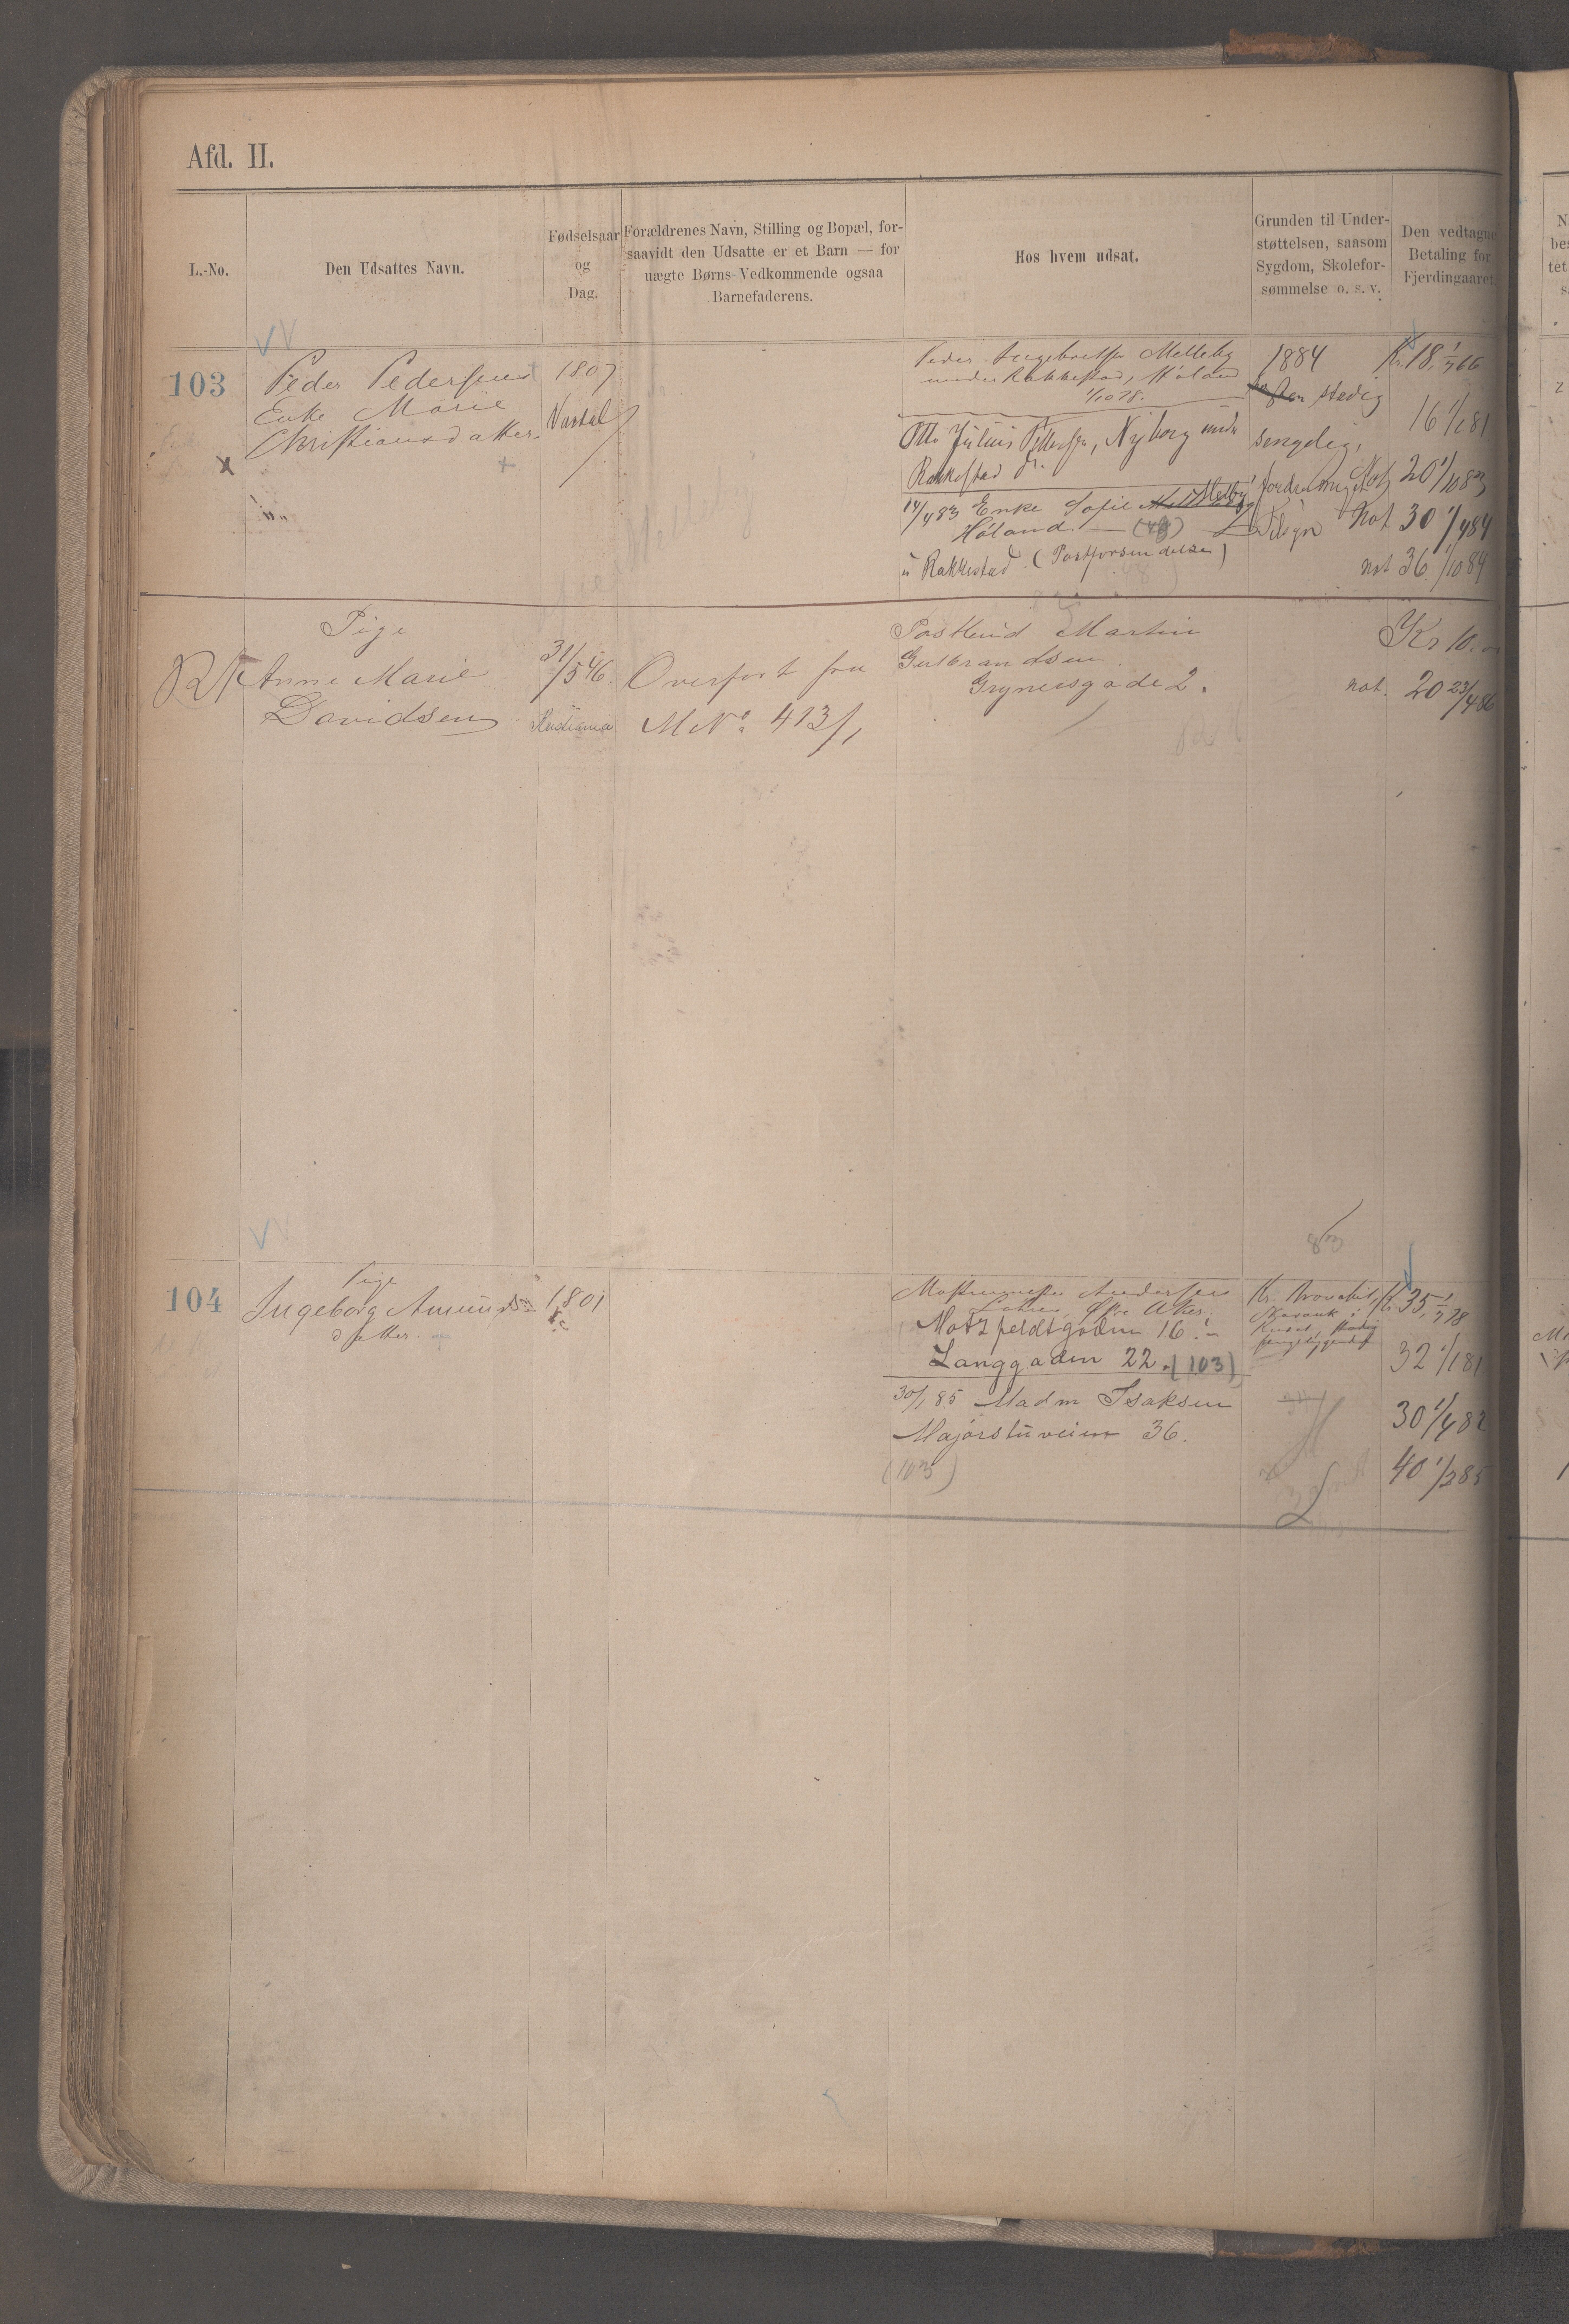 Afd. II.
L.-No.
Den Udsattes Navn.
Fødselsaar
og
Dag.
Forældrenes Navn, Stilling og Bopæl, for-
saavidt den Udsatte er et Barn — for
uægte Børns Vedkommende ogsaa
Barnefaderens.
Hos hvem udsat.
Grunden til Under-
støttelsen, saasom
Sygdom, Skolefor-
sømmelse o. s. v.
Den vedtagne
Betaling for
Fjerdingaaret.
103
Peder Pedersens
Enke Marie
Christiansdatter.
1807
Peder Ingebretsen Melleby
under Rakkestad, Høland
1/10 78.
Otto Julius Pettersen, Nyborg under
Rakkestad
14/4 83 Enke Sofie Melby
Høland (48)
u Rakkestad. (Postforsendelse)
1884
stadig
sengelig,
Tilsyn
Kr. 18, 1/7 66
16 1/1 81
Not 20 1/10 83
Not 30 1/4 84
not 36 1/10 84
Pige
Anne Marie
Davidsen
31/5 46.
Kristiania
Overført fra
M No. 413/1
Postbud Martin
Gulbrandsen.
Grynersgade 2.
Kr 10.
not. 20 23/4 86
83
104
Pige
Ingeborg Amunds-
datter.
1801
Andersen
Aker.
Motzfeldtgaden 16.
Langgaden 22. (103)
30/1 85 Madm Isaksen
Majorstuveien 36.
(103)
Kr. 35, 1/7 78
32 1/1 81
30 1/4 82
40 1/2 85